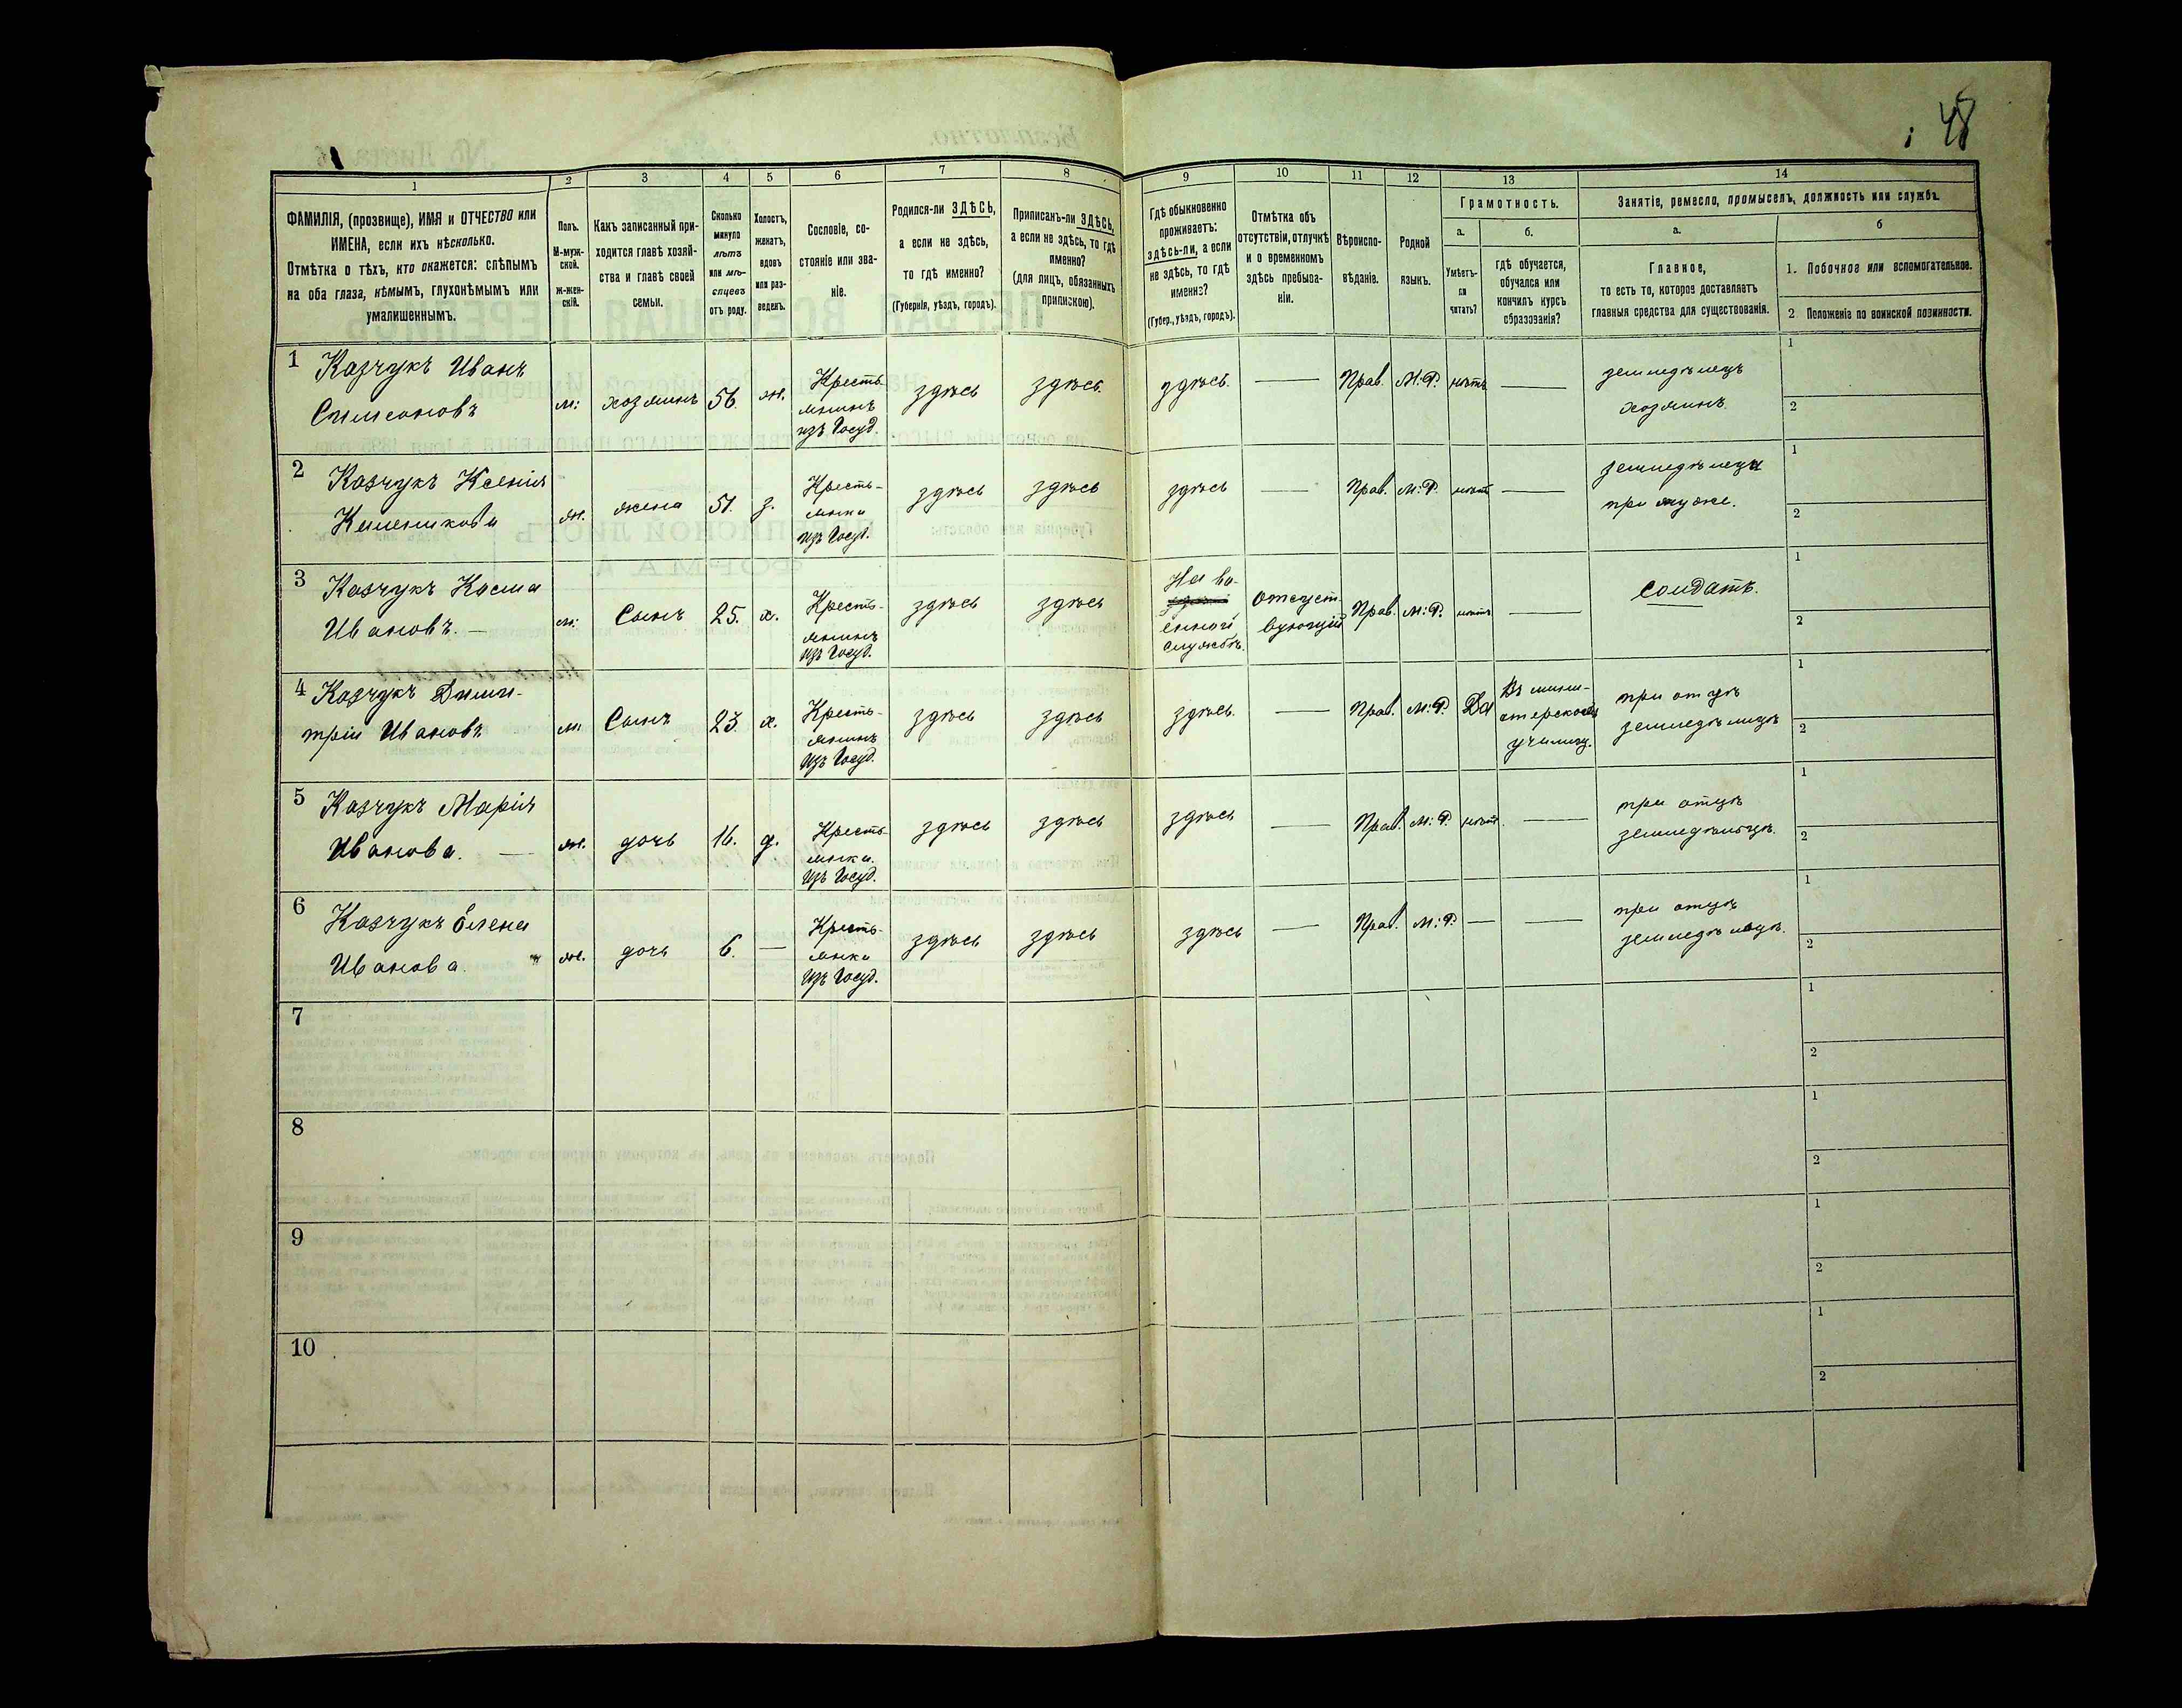 48
1
2
3
4
5
6
7
8
9
10
11
12
13
14
ФАМИЛІЯ, (прозвище), ИМЯ и ОТЧЕСТВО или
ИМЕНА, если ихъ нѣсколько.
Отмѣтка о тѣхъ, кто окажется: слѣпымъ
на оба глаза, нѣмымъ, глухонѣмымъ или
умалишеннымъ.
Полъ.
М-муж-
ской.
Ж-жен-
скій.
Какъ записанный при-
ходится главѣ хозяй-
ства и главѣ своей
семьи.
Сколько
минуло
лѣтъ
или мѣ-
сяцевъ
отъ роду.
Холостъ,
женатъ,
вдовъ
или раз-
веденъ.
Сословіе, со-
стояніе или зва-
ніе.
Родился-ли ЗДѢСЬ,
а если не здѣсь,
то гдѣ именно?
(Губернія, уѣздъ, городъ).
Приписанъ-ли ЗДѢСЬ,
а если не здѣсь, то гдѣ
именно?
(для лицъ, обязанныхъ
припискою).
Гдѣ обыкновенно
проживаетъ:
здѣсь-ли, а если
не здѣсь, то гдѣ
именно?
(Губер., уѣздъ, городъ).
Отмѣтка объ
отсутствіи, отлучкѣ
и о временномъ
здѣсь пребыва-
ніи.
Вѣроиспо-
вѣданіе.
Родной
языкъ.
Грамотность.
а.
Умѣетъ-
ли
читать?
б.
гдѣ обучается,
обучался или
кончилъ курсъ
образованія?
Занятіе, ремесло, промыселъ, должность или служба.
а.
Главное,
то есть то, которое доставляетъ
главныя средства для существованія.
б
1. Побочное или вспомогательное.
2 Положеніе по воинской повинности.
1
Казчукъ Иванъ
Симеоновъ
м:
хозяинъ
56.
ж.
Кресть-
янинъ
изъ Госуд.
здѣсь
здѣсь.
здѣсь.
Прав.
М:Р.
нѣтъ
земледѣлецъ
хозяинъ.
1
2
2
Казчукъ Ксенія
ж.
жена
51.
з.
Кресть-
янка
изъ Госуд.
здѣсь
здѣсь
здѣсь
Прав.
М:Р.
нѣтъ
земледѣлецъ
при муже.
1
2
3
Казчукъ Косма
Ивановъ.
м:
Сынъ
25.
х.
Кресть-
янинъ
изъ Госуд.
здѣсь
здѣсь
На во-
енной
службѣ.
Отсутст-
вующій
Прав.
М:Р.
нѣтъ
Солдатъ.
1
2
4
Казчукъ Дими-
трій Ивановъ
м.
Сынъ
23.
х.
Кресть-
янинъ
изъ Госуд.
здѣсь
здѣсь
здѣсь.
Прав.
М:Р.
Да
Въ мини-
стерскомъ
училищ.
при отцѣ
земледѣлецъ
1
2
5
Казчукъ Марія
Иванова.
ж.
дочь
16.
д.
Кресть-
янка.
изъ Госуд.
здѣсь
здѣсь
здѣсь
Прав.
М:Р.
нѣтъ.
при отцѣ
земледѣльцѣ.
1
2
6
Казчукъ Елена
Иванова.
ж.
дочь
6.
Кресть-
янка
изъ Госуд.
здѣсь
здѣсь
здѣсь
Прав.
М:Р.
при отцѣ
земледѣльцѣ.
1
2
7
1
2
8
1
2
9
1
2
10
1
2